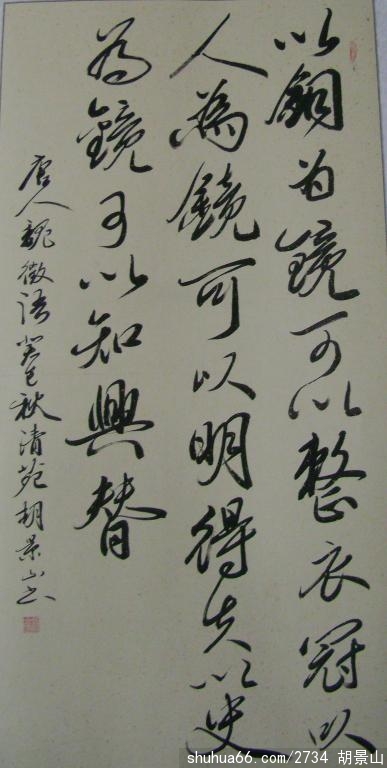 以銅为鏡可以整衣冠以
人為鏡可以明得失以史
为鏡可以知興替
唐人魏徵语癸巳秋清苑胡景山书
shuhua66.com/2734 胡景山